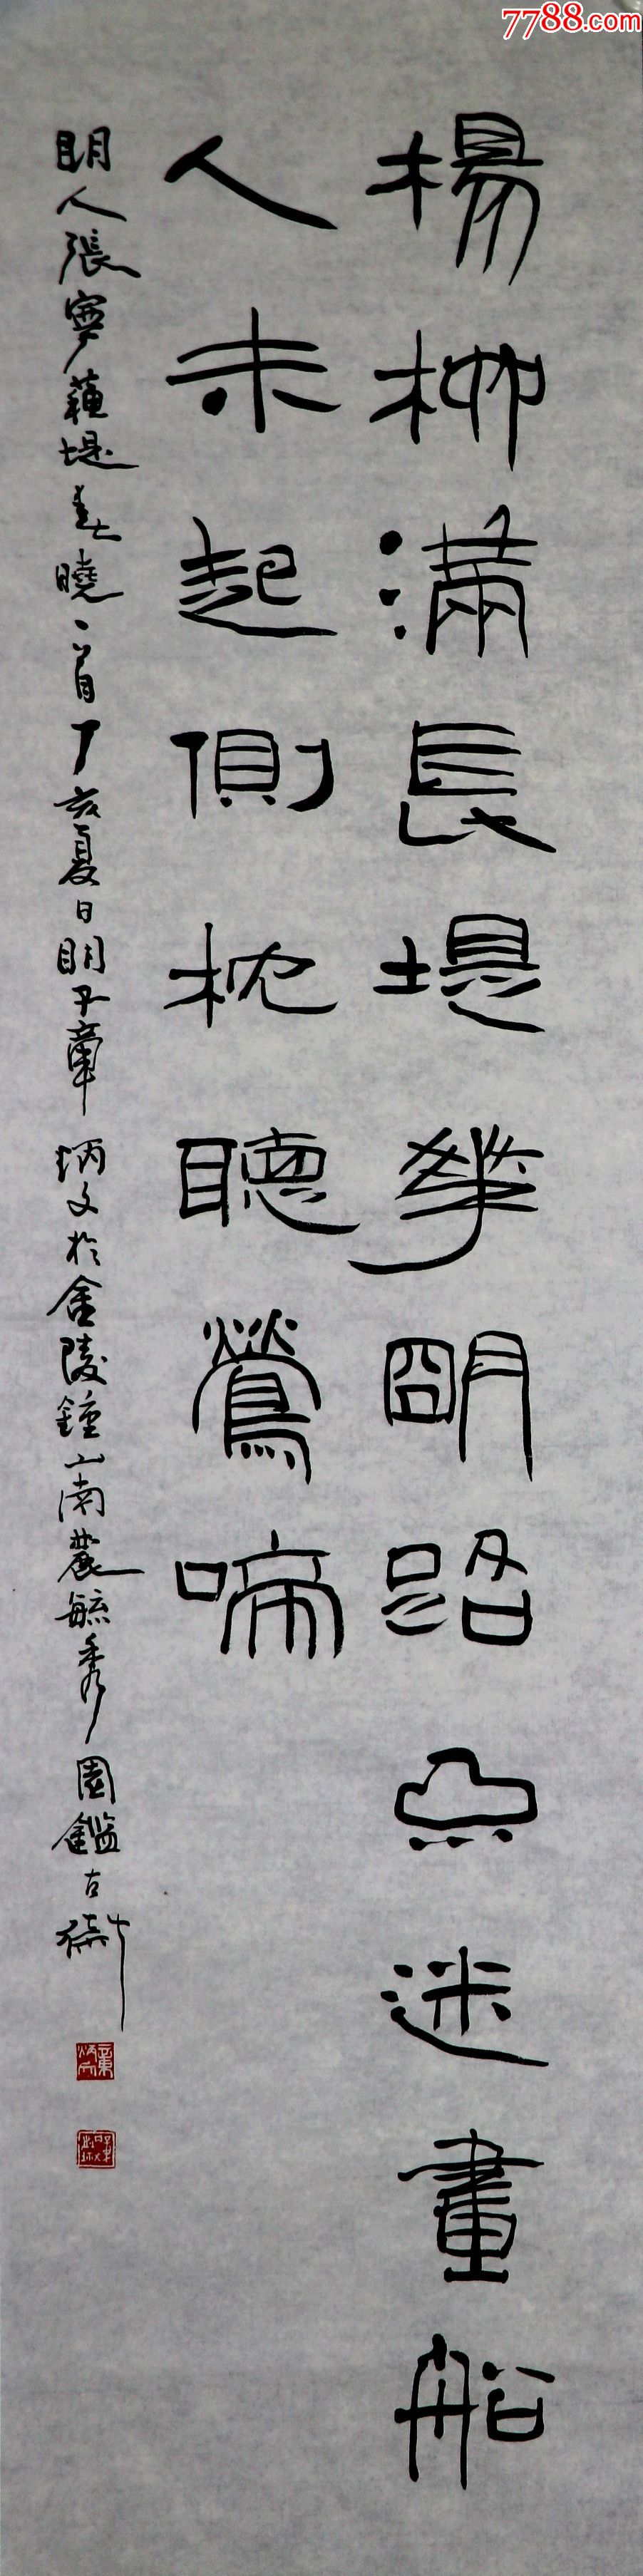 7788.com
楊柳滿長堤華明路不迷畫船
人未起側枕聽鶯啼
明人張寧蘇堤春曉一首丁亥夏日明子章炳文於金陵鍾山南麓毓秀園鑑古